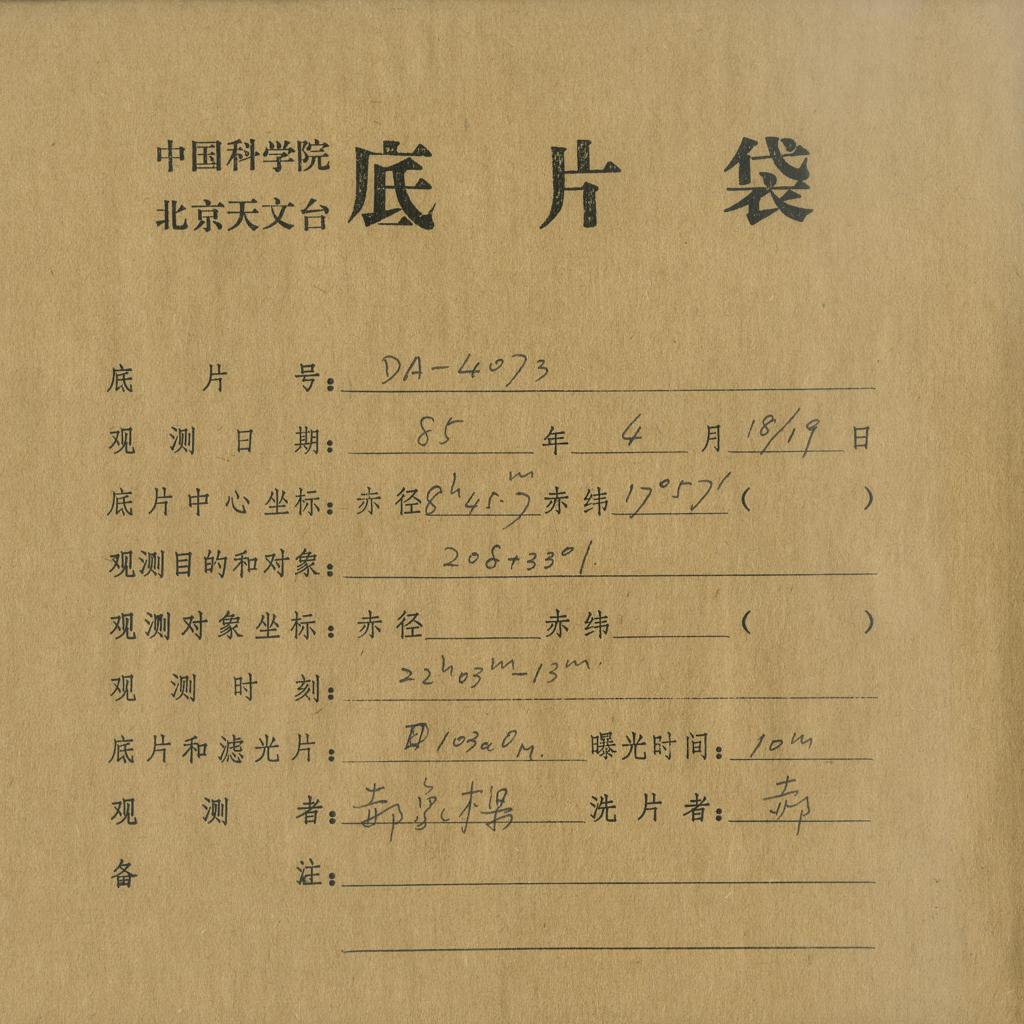 中国科学院
北京天文台
底片袋
底片号：DA-4073
观测日期：85年4月18/19日
底片中心坐标：赤径8h45.7m赤纬17°57′（ ）
观测目的和对象：208+330/.
观测对象坐标：赤径 赤纬 （ ）
观测时刻：22h03m-13m.
底片和滤光片：103aO 曝光时间：10m
观测者：郝象樑 洗片者：郝
备注：